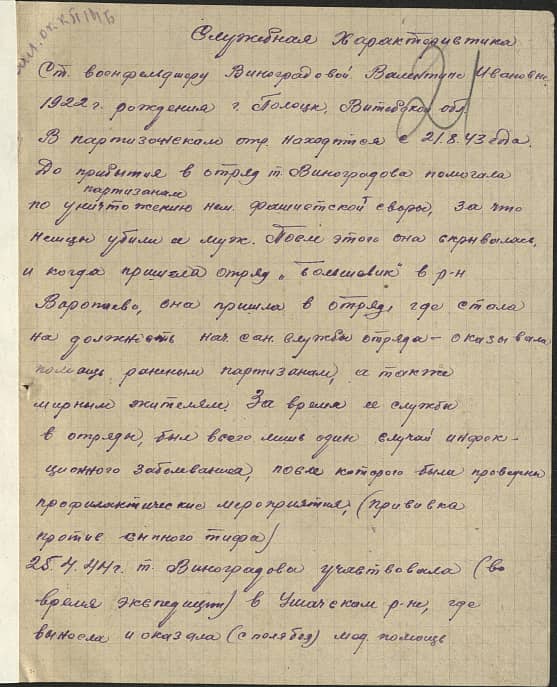 Служебная характеристика
Ст. военфельдшеру Виноградовой Валентине Ивановне
1922 г. рождения г. Полоцк. Витебской обл.
В партизанском отр. находится с 21.8.43 года.
До прибытия в отряд т. Виноградова помогала
партизанам
по уничтожению нем. фашистской своры, за что
немцы убили а муж. После этого она скрывалась,
и когда пришела отряд „Большевик" в р-н
Воропаево, она пришла в отряд, где стала
на должность нач. сан. службы отряда – оказывала
помощь раненым партизанам, а также
мирным жителям. За время ее службы
в отряды, был всего лишь один случай инфек-
ционного заболевания, после которого были проверены
профилактические мероприятия, (прививка
против сыпного тифа)
25.4.44 г. т. Виноградова участвовала (во
время экспедиции) в Ушачском р-не, где
вынесла и оказала (с поля боя) мед. помощь